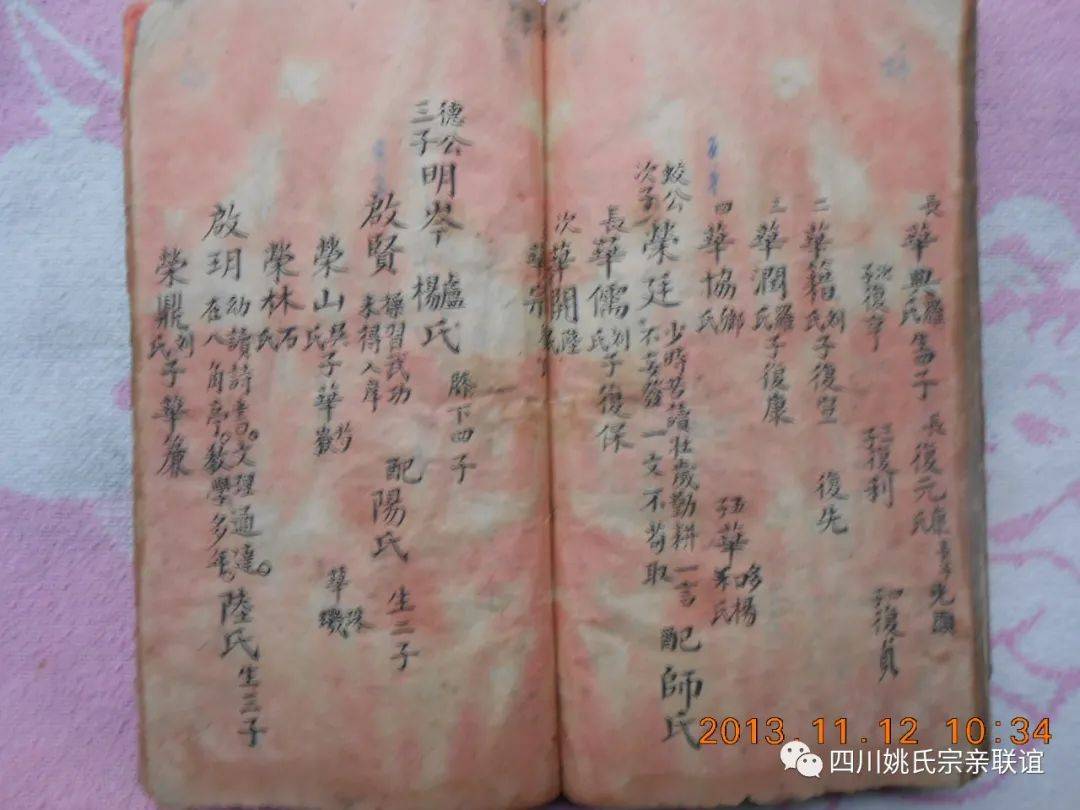 長 華興羅氏 生子 長 復元康氏
次子復亨 三子復利 四子復貞
二 華籍刘氏 子復 復先
三 華潤羅氏 子復康
四 華協鄉氏 五子華
蛟公次子 榮廷 少時苦讀壯歲勤耕一言不妄發一文不苟取 配師氏
長 華儒刘氏 子復保
次 華開陸氏
華宗
德公三子 明岑 楊氏 膝下四子
啟賢 操習武功未得入庠 配陽氏 生二子
榮山吳氏 子華
榮林石氏
啟玥 幼讀詩書文理通達在八角亭教學多年 陸氏 生三子
榮鼎刘氏 子華廉
2013.11.12 10:34
四川姚氏宗亲联谊